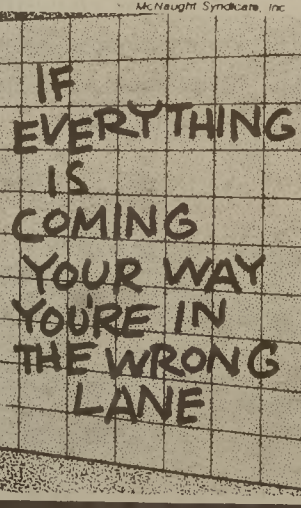 McNaught Syndicate, Inc
IF
EVERYTHING
IS
COMING
YOUR WAY
YOU'RE IN
THE WRONG
LANE